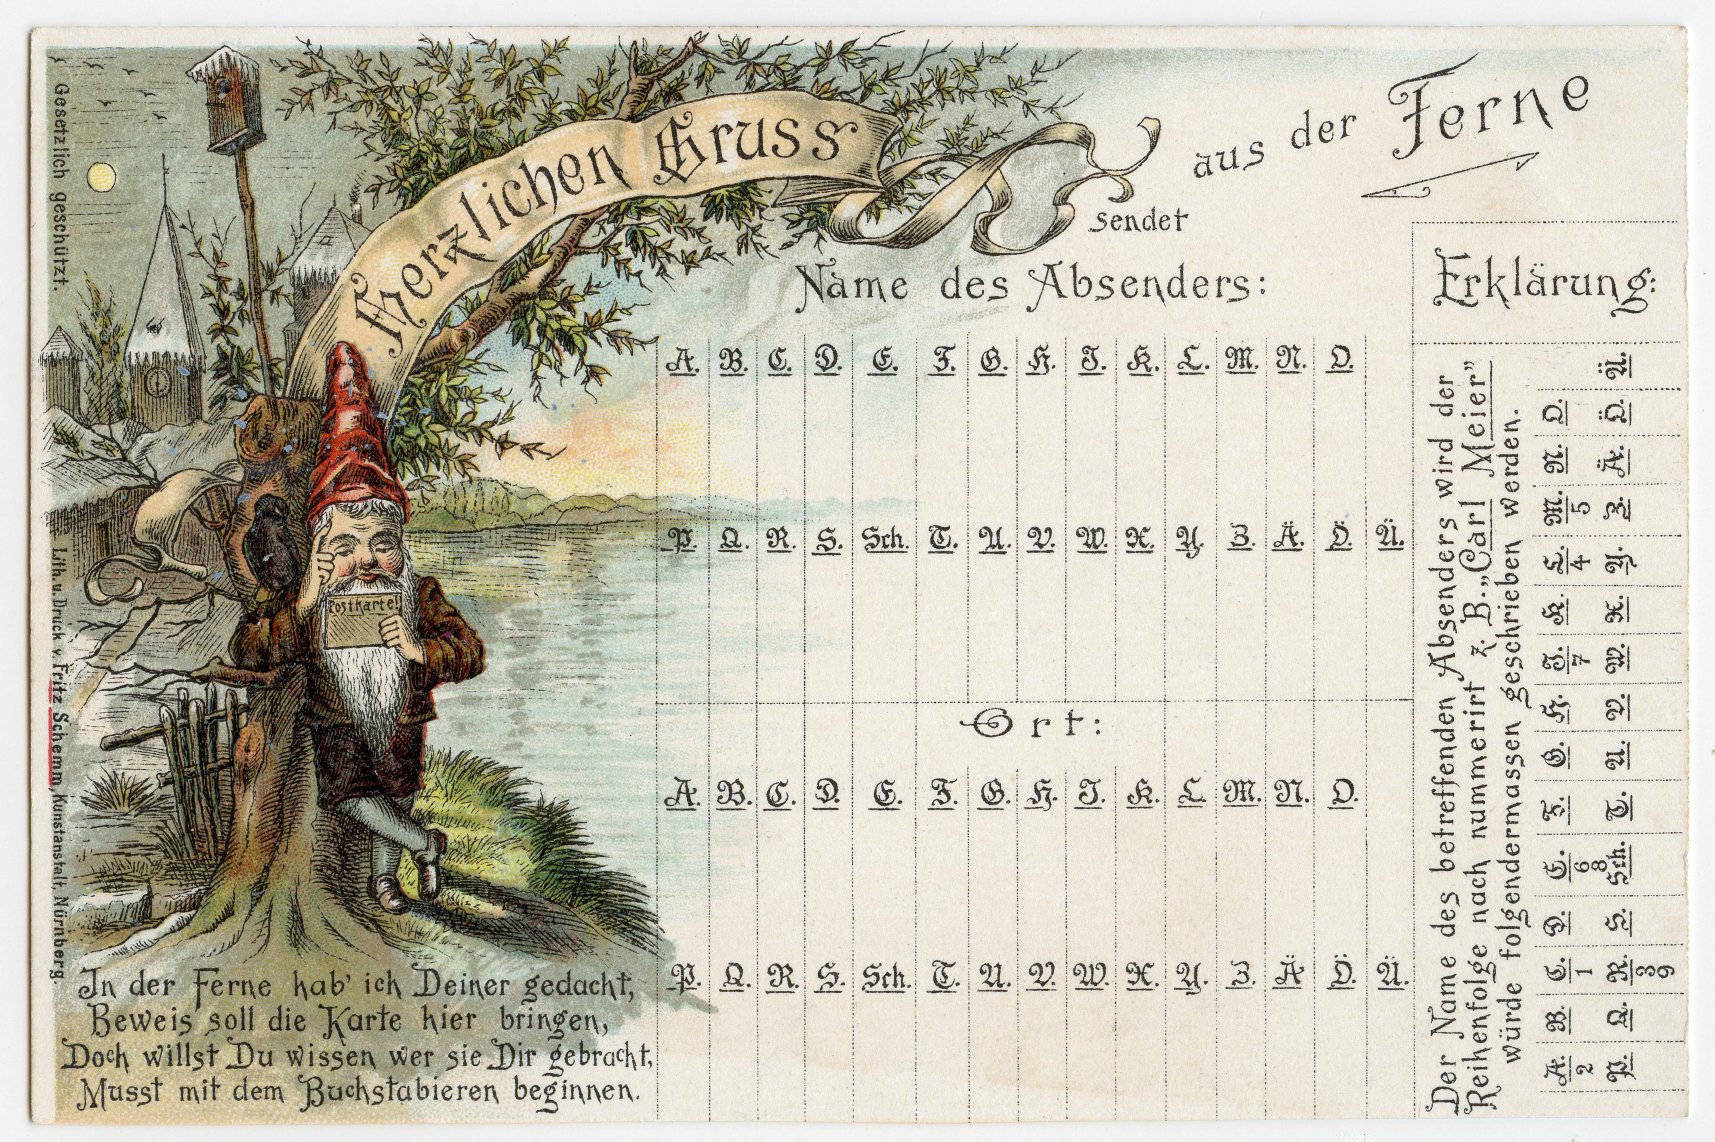 Herzlichen Gruss
aus der Ferne
sendet
Name des Absenders:
A. B. C. D. E. F. G. H. I. K. L. M. N. O.
P. Q. R. S. Sch. T. U. V. W. X. Y. Z. Ä. Ö. Ü.
Ort:
A. B. C. D. E. F. G. H. I. K. L. M. N. O.
P. Q. R. S. Sch. T. U. V. W. X. Y. Z. Ä Ö. Ü.
Postkarte!
In der Ferne hab' ich Deiner gedacht,
Beweis soll die Karte hier bringen,
Doch willst Du wissen wer sie Dir gebracht,
Musst mit dem Buchstabieren beginnen.
Gesetzlich geschützt.
Lith. u. Druck v. Fritz Schemm, Kunstanstalt, Nürnberg.
Erklärung:
Der Name des betreffenden Absenders wird der
Reihenfolge nach nummerirt z. B. „Carl Meier"
würde folgendermassen geschrieben werden.
A. B. C. D. E. F. G. H. I. K. L. M. N. O.
2 1 6 7 4 5
8
P. Q. R. S. Sch. T. U. V. W. X. Y. Z. Ä. Ö. Ü.
3
9